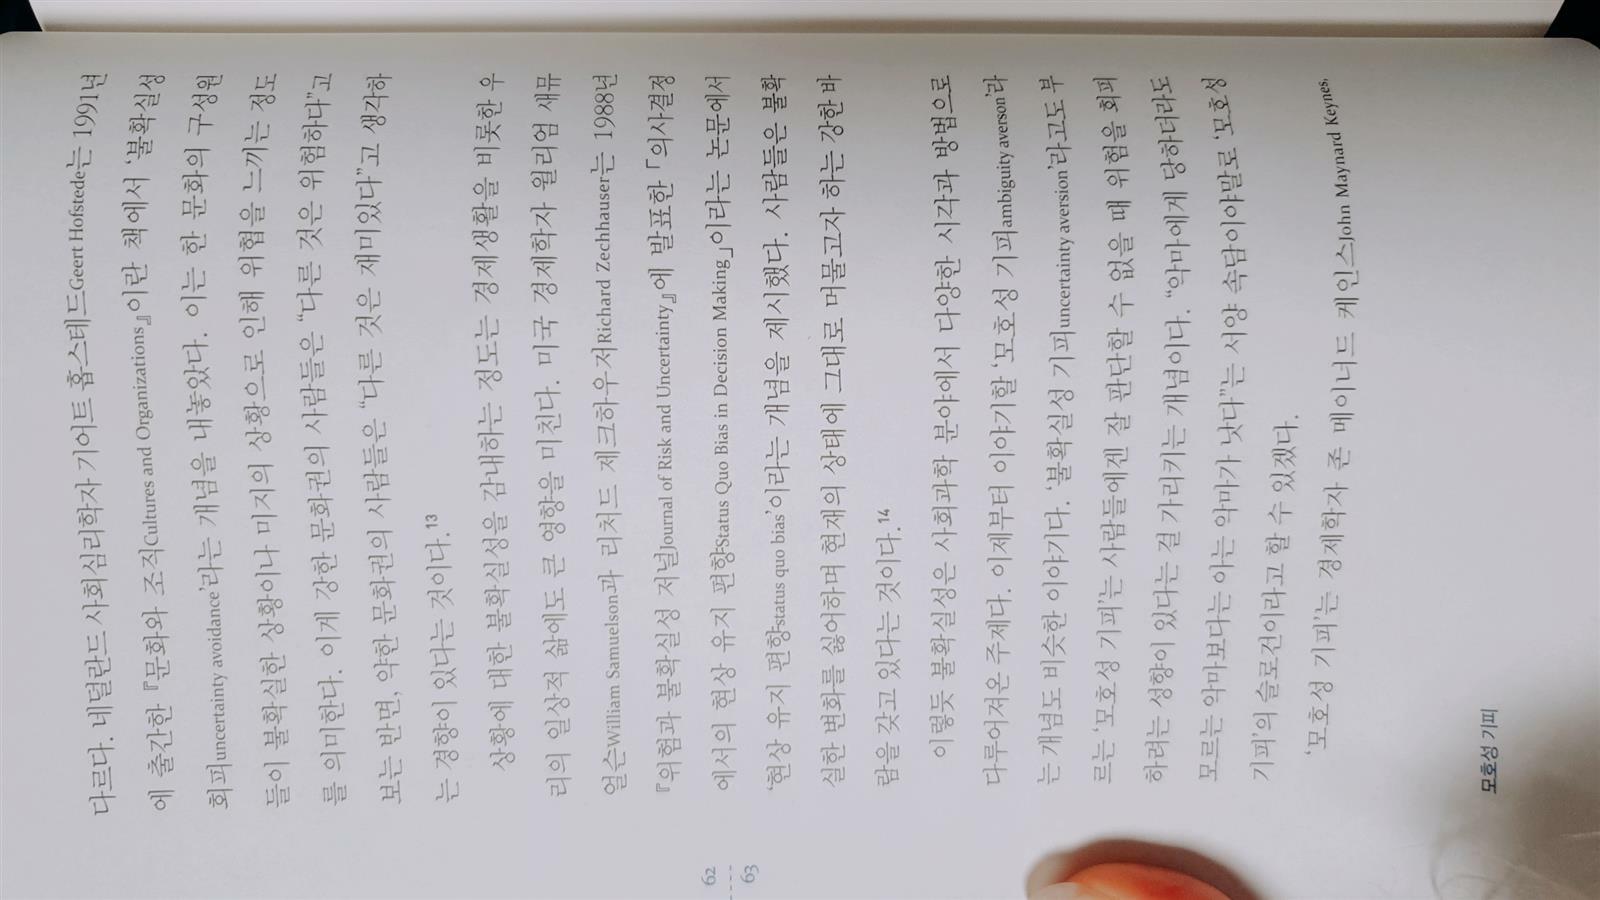 다르다. 네덜란드 사회심리학자 기어트 홉스테드Geert Hofstede는 1991년
에 출간한 『문화와 조직Cultures and Organizations』이란 책에서 ‘불확실성
회피uncertainty avoidance’라는 개념을 내놓았다. 이는 한 문화의 구성원
들이 불확실한 상황이나 미지의 상황으로 인해 위협을 느끼는 정도
를 의미한다. 이게 강한 문화권의 사람들은 “다른 것은 위험하다”고
보는 반면, 약한 문화권의 사람들은 “다른 것은 재미있다”고 생각하
는 경향이 있다는 것이다.13
상황에 대한 불확실성을 감내하는 정도는 경제생활을 비롯한 우
리의 일상적 삶에도 큰 영향을 미친다. 미국 경제학자 윌리엄 새뮤
얼슨William Samuelson과 리처드 제크하우저Richard Zechhauser는 1988년
『위험과 불확실성 저널Journal of Risk and Uncertainty』에 발표한 「의사결정
에서의 현상 유지 편향Status Quo Bias in Decision Making」이라는 논문에서
‘현상 유지 편향status quo bias’이라는 개념을 제시했다. 사람들은 불확
실한 변화를 싫어하며 현재의 상태에 그대로 머물고자 하는 강한 바
람을 갖고 있다는 것이다.14
이렇듯 불확실성은 사회과학 분야에서 다양한 시각과 방법으로
다루어져온 주제다. 이제부터 이야기할 ‘모호성 기피ambiguity averson’라
는 개념도 비슷한 이야기다. ‘불확실성 기피uncertainty aversion’라고도 부
르는 ‘모호성 기피’는 사람들에겐 잘 판단할 수 없을 때 위험을 회피
하려는 성향이 있다는 걸 가리키는 개념이다. “악마에게 당하더라도
모르는 악마보다는 아는 악마가 낫다”는 서양 속담이야말로 ‘모호성
기피’의 슬로건이라고 할 수 있겠다.
‘모호성 기피’는 경제학자 존 메이너드 케인스John Maynard Keynes,
모호성 기피
62
63